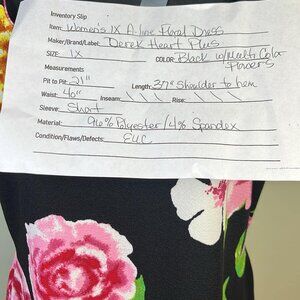 Inventory Slip
Item: Women's 1X A-line Floral Dress
Maker/Brand/Label: Derek Heart Plus
SIZE: 1X COLOR: Black w/Multi Color Flowers
Measurements
Pit to Pit: 21" Length: 37" Shoulder to hem
Waist: 40" Inseam: Rise:
Sleeve: Short
Material: 96% Polyester / 4% Spandex
Condition/Flaws/Defects: EUC